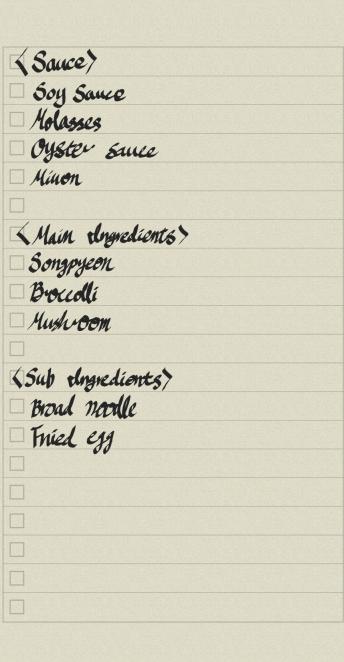 <Sauce>
Soy Sauce
Molasses
Oyster sauce
Mixon
<Main Ingredients>
Songpyeon
Broccolli
Mushroom
<Sub Ingredients>
Broad noodle
Fried egg